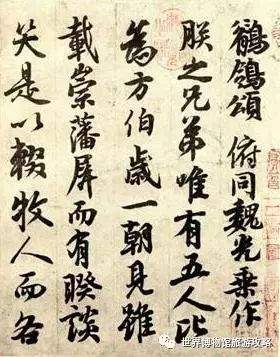 鶺鴒頌 俯同魏光乘作
朕之兄弟唯有五人比
為方伯歲一朝見雖
載崇藩屏而有睽談
笑是以輟牧人而各
世界博物馆旅游攻略